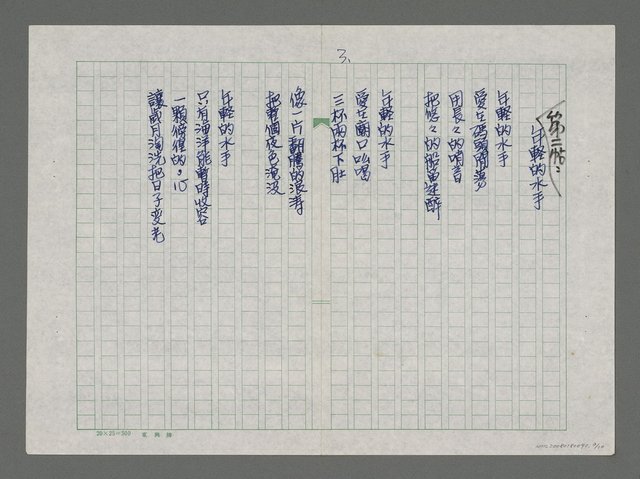 3.
第二帖:
年輕的水手
年輕的水手
愛在碼頭閒蕩
用長々的哨音
把悠々的船笛迷醉
年輕的水手
愛在廟口吆喝
三杯兩杯下肚
像一片翻騰的浪濤
把整個夜色淹沒
年輕的水手
只有海洋能暫時收容
一顆倦倦的心
讓歲月淘洗把日子變老
20×25=500